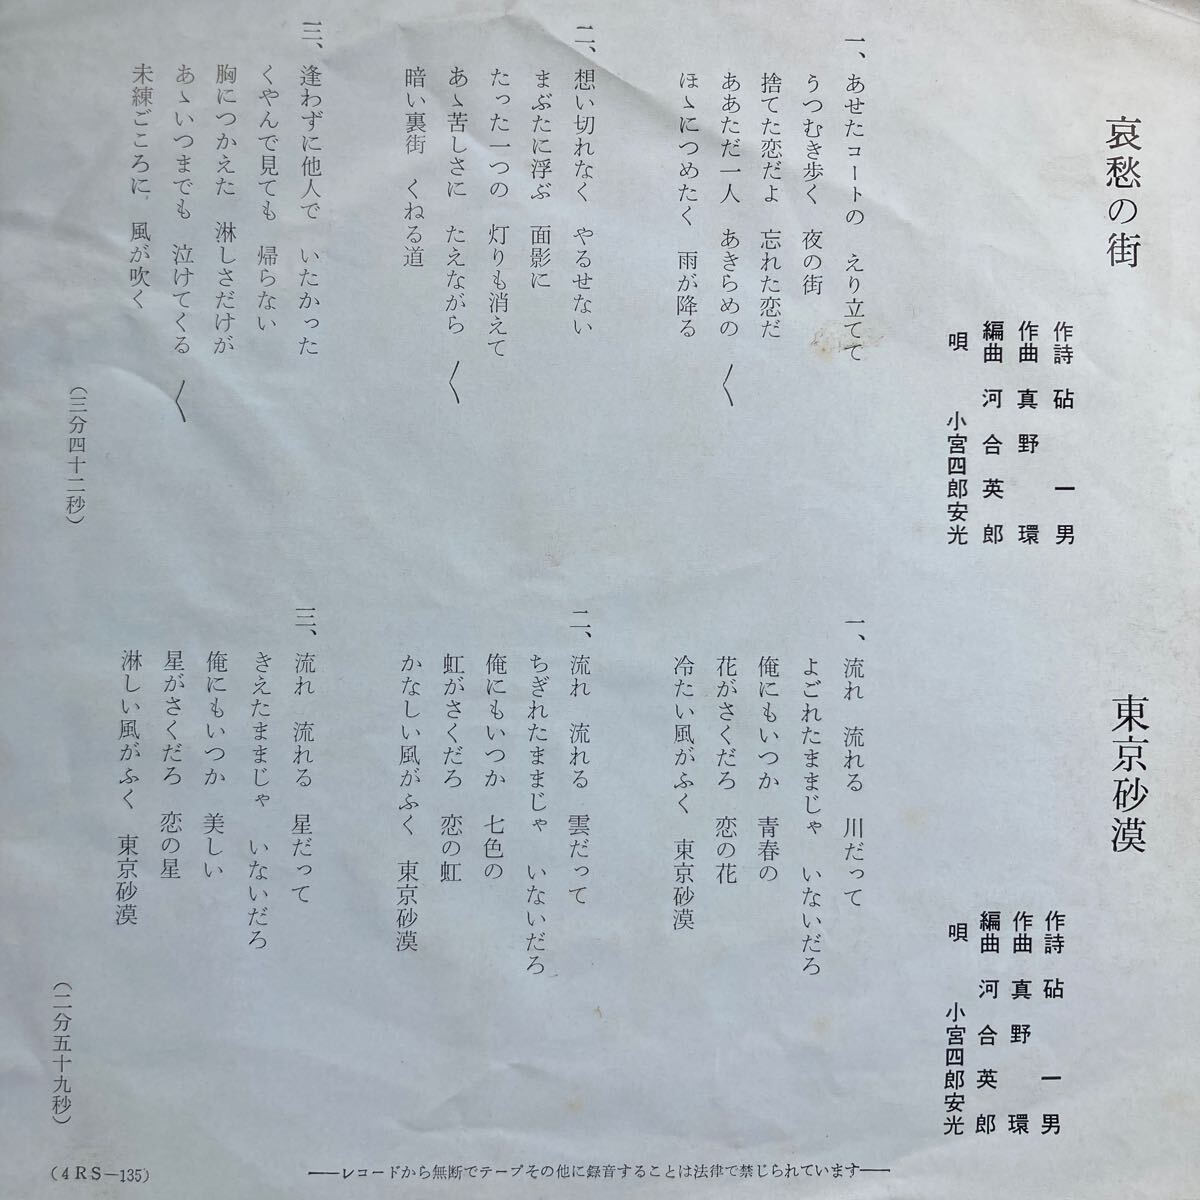 哀愁の街
作詩 砧 一男
作曲 真野 環
編曲 河合英郎
唄 小宮四郎安光
一、あせたコートの えり立てて
うつむき歩く 夜の街
捨てた恋だよ 忘れた恋だ
ああただ一人 あきらめの 〱
ほゝにつめたく 雨が降る
二、想い切れなく やるせない
まぶたに浮ぶ 面影に
たった一つの 灯りも消えて
あゝ苦しさに たえながら 〱
暗い裏街 くねる道
三、逢わずに他人で いたかった
くやんで見ても 帰らない
胸につかえた 淋しさだけが
あゝいつまでも 泣けてくる 〱
未練ごころに 風が吹く
(三分四十二秒)
東京砂漠
作詩 砧 一男
作曲 真野 環
編曲 河合英郎
唄 小宮四郎安光
一、流れ 流れる 川だって
よごれたままじゃ いないだろ
俺にもいつか 青春の
花がさくだろ 恋の花
冷たい風がふく 東京砂漠
二、流れ 流れる 雲だって
ちぎれたままじゃ いないだろ
俺にもいつか 七色の
虹がさくだろ 恋の虹
かなしい風がふく 東京砂漠
三、流れ 流れる 星だって
きえたままじゃ いないだろ
俺にもいつか 美しい
星がさくだろ 恋の星
淋しい風がふく 東京砂漠
(二分五十九秒)
(4RS—135)
——レコードから無断でテープその他に録音することは法律で禁じられています——